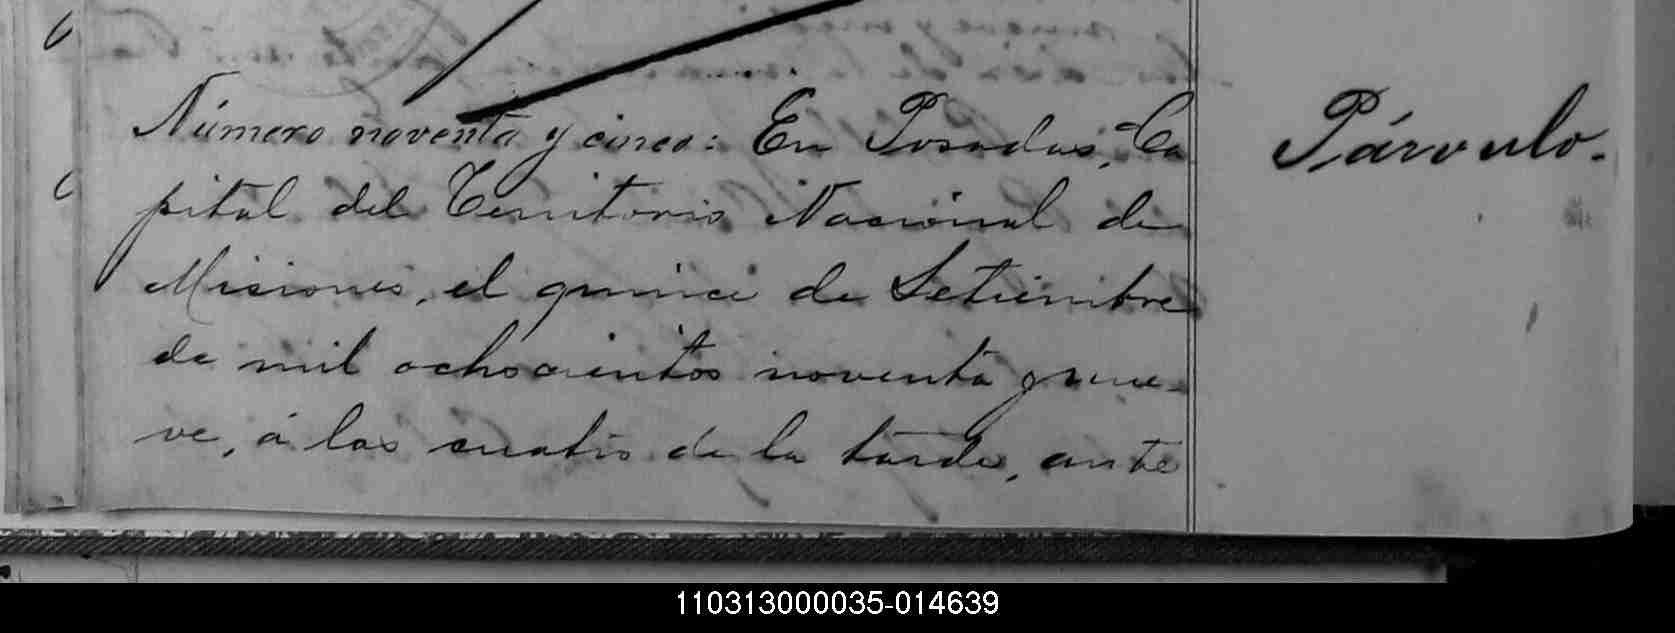 Número noventa y cinco: En Posadas, Ca
pital del Territorio Nacional de
Misiones, el quince de Setiembre
de mil ochocientos noventa y nue-
ve, á las cuatro de la tarde, ante
Párvulo.
110313000035-014639